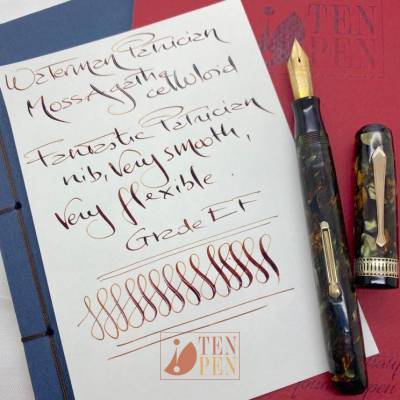 Waterman Patrician
Moss-Agatha
celluloid
Fantastic Patrician
nib, Very smooth,
Very flexible.
Grade EF
TEN
PEN
TEN
PEN